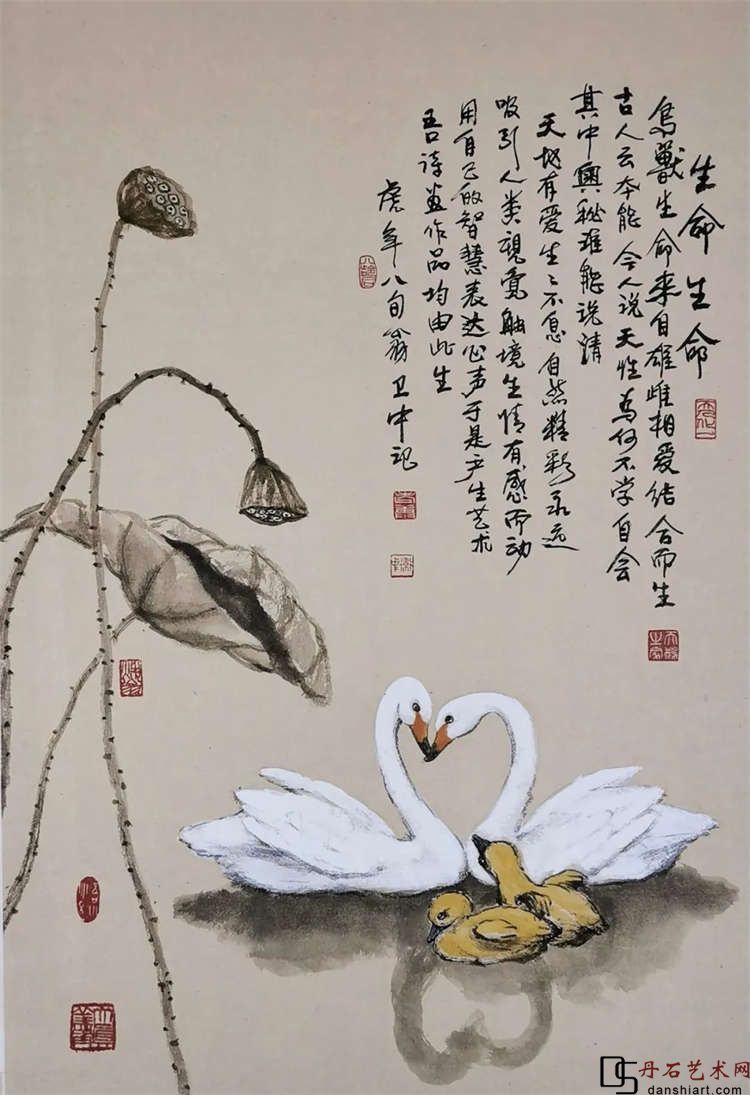 生命生命
鳥獸生命来自雄雌相爱结合而生
古人云本能今人说天性為何不学自会
其中奧秘难能说清
天地有爱生〻不息自然精彩永远
吸引人类視觉触境生情有感而动
用自己的智慧表达心声于是产生艺术
吾诗画作品均由此生
虎年八旬翁卫中记
DS
丹石艺术网
danshiart.com